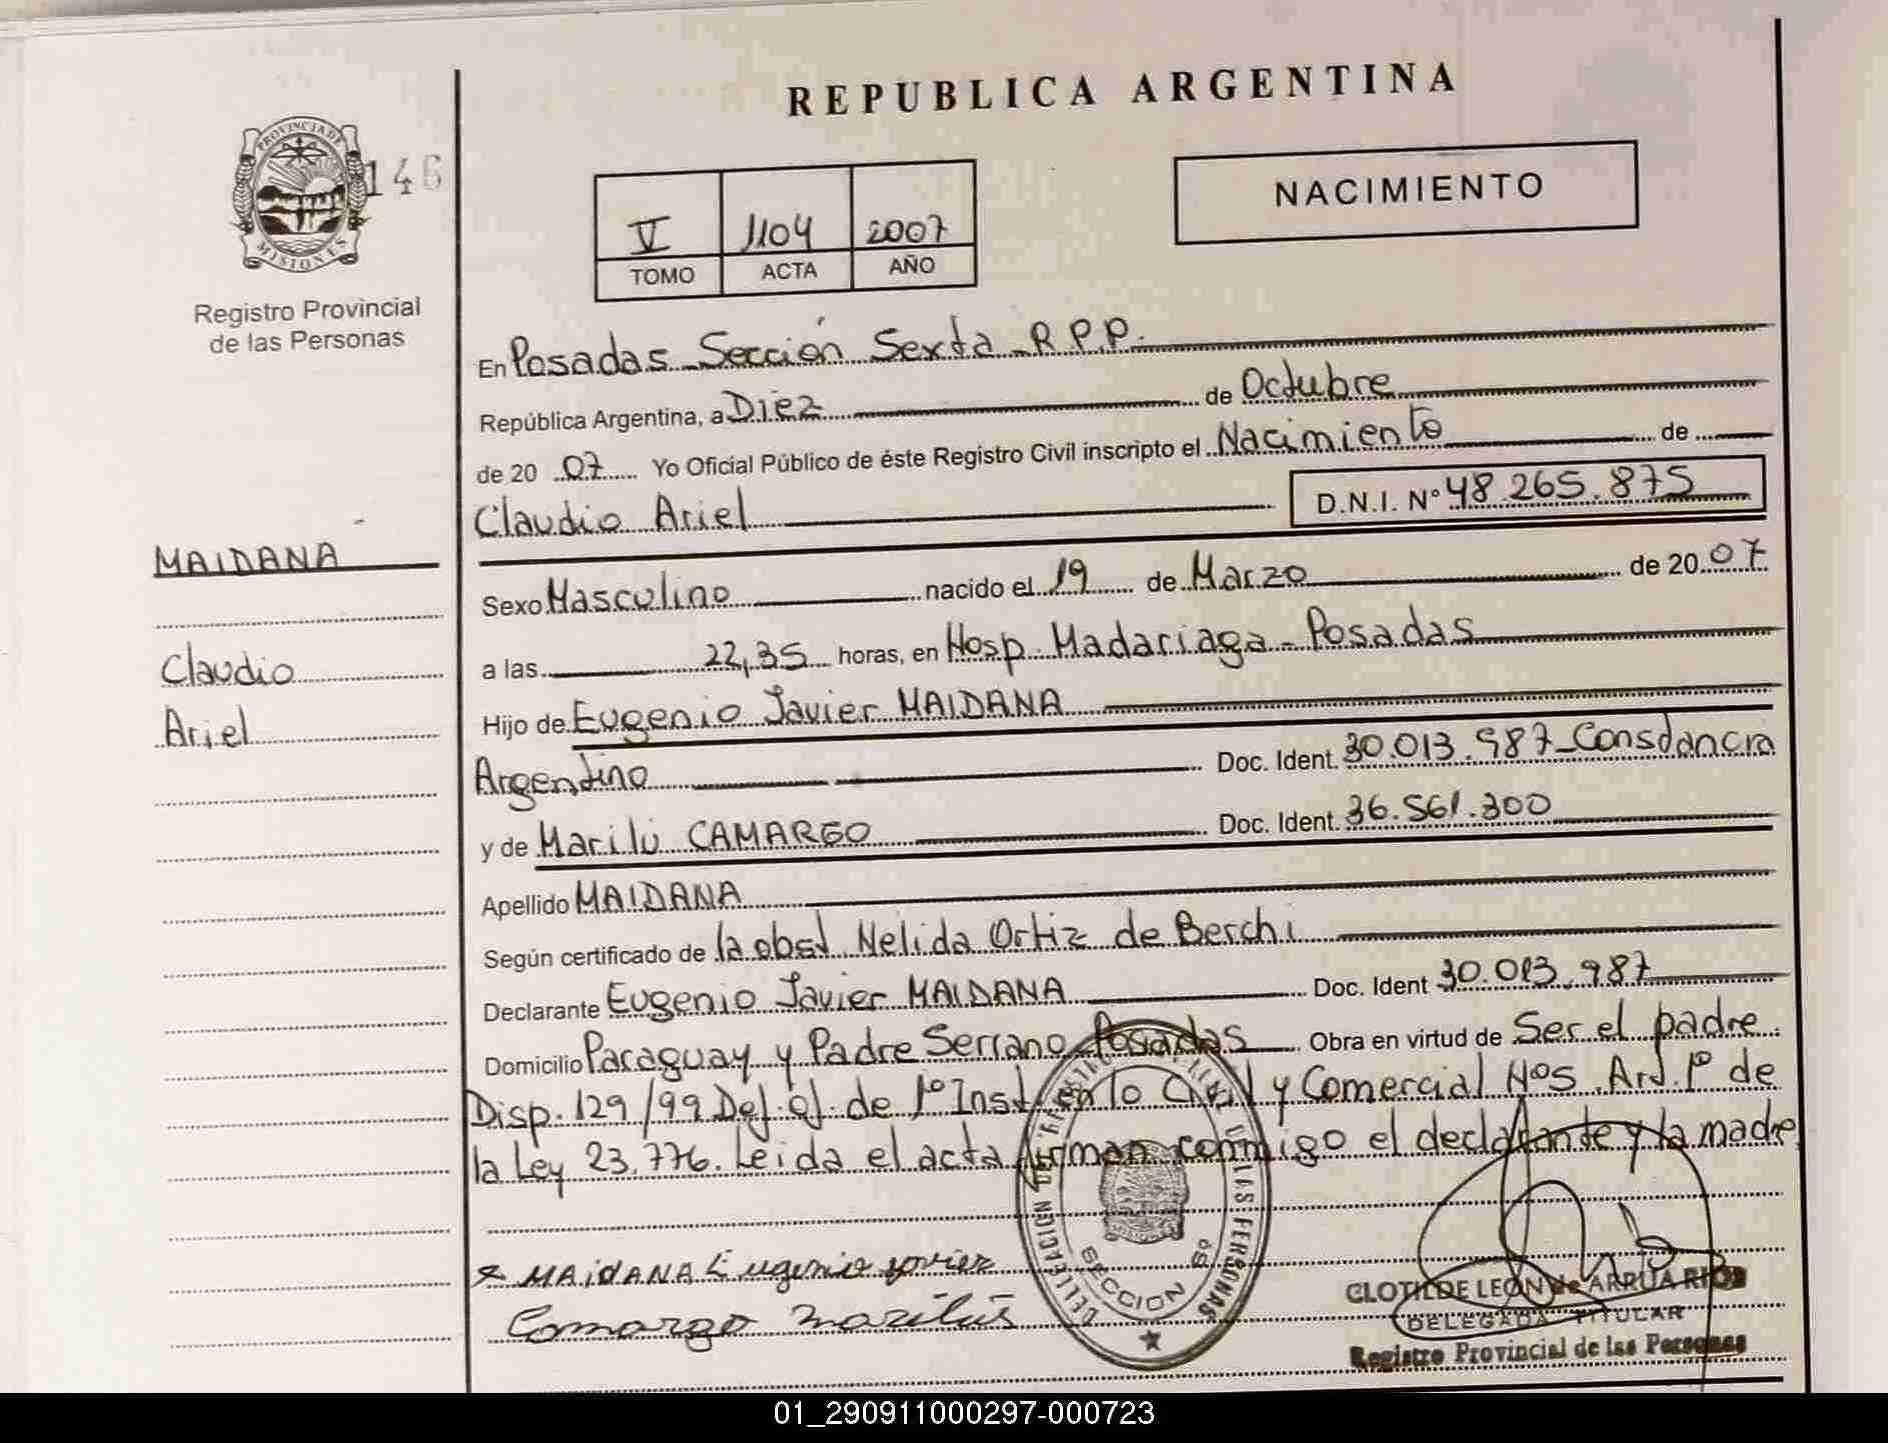 REPUBLICA ARGENTINA
PROVINCIA DE
MISIONES
146
Registro Provincial
de las Personas
NACIMIENTO
V 1104 2007
TOMO ACTA AÑO
En Posadas Sección Sexta R.P.P.
República Argentina, a Diez de Octubre
de 20 07 Yo Oficial Público de éste Registro Civil inscripto el Nacimiento de
Claudio Ariel D.N.I. Nº 48.265.875
MAIDANA
Claudio
Ariel
Sexo Masculino nacido el 19 de Marzo de 20 07
a las 22,35 horas, en Hosp. Madariaga - Posadas
Hijo de Eugenio Javier MAIDANA
Argentino Doc. Ident. 30.013.987 Constancia
y de Marilú CAMARGO Doc. Ident. 36.561.300
Apellido MAIDANA
Según certificado de la obst Nelida Ortiz de Berchi
Declarante Eugenio Javier MAIDANA Doc. Ident 30.013.987
Domicilio Paraguay y Padre Serrano Posadas Obra en virtud de Ser el padre
Disp. 129/99 Def. of. de 1º Inst en lo Civil y Comercial Nº5. Art. 1º de
la Ley 23.776. Leida el acta firman conmigo el declarante y la madre
MAIDANA Eugenio Javier
Camargo Marilú
DELEGACION
SECCION 6º
DE LAS PERSONAS
CLOTILDE LEON de ARRUA RIOS
DELEGADA TITULAR
Registro Provincial de las Personas
01_290911000297-000723